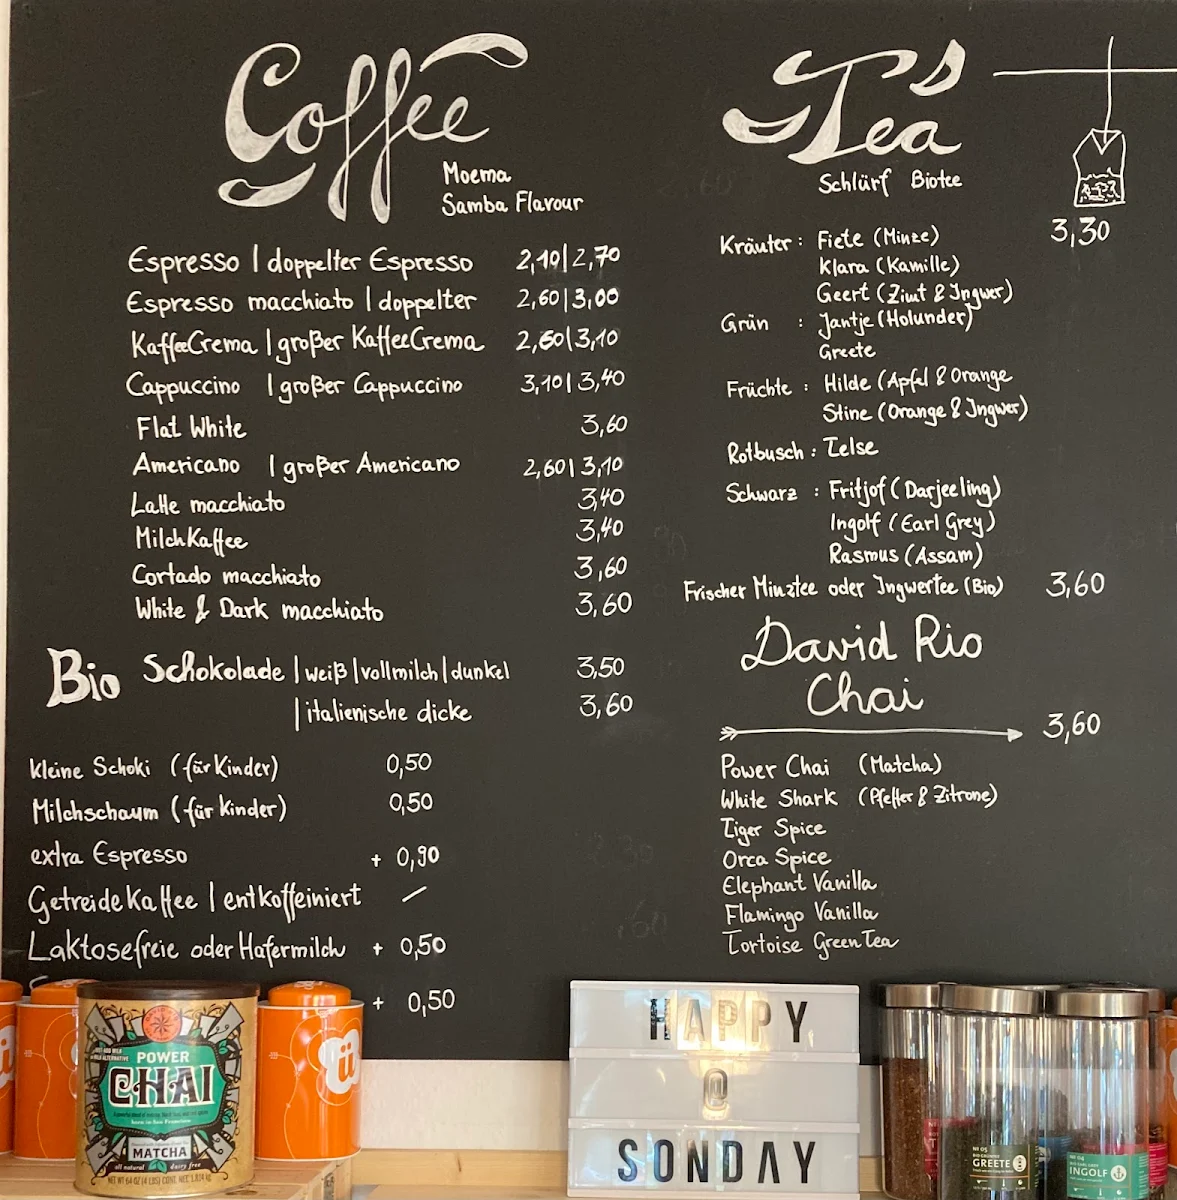 Coffee
Moema
Samba Flavour
Espresso | doppelter Espresso 2,10 | 2,70
Espresso macchiato | doppelter 2,60 | 3,00
KaffeeCrema | großer KaffeeCrema 2,60 | 3,10
Cappuccino | großer Cappuccino 3,10 | 3,40
Flat White 3,60
Americano | großer Americano 2,60 | 3,10
Latte macchiato 3,40
MilchKaffee 3,40
Cortado macchiato 3,60
White & Dark macchiato 3,60
Bio Schokolade | weiß | vollmilch | dunkel 3,50
| italienische dicke 3,60
kleine Schoki (für Kinder) 0,50
Milchschaum (für Kinder) 0,50
extra Espresso + 0,90
GetreideKaffee | entkoffeiniert /
Laktosefreie oder Hafermilch + 0,50
+ 0,50
Tea
Schlürf Biotee
3,30
Kräuter : Fiete (Minze)
Klara (Kamille)
Geert (Zimt & Ingwer)
Grün : Jantje (Holunder)
Greete
Früchte : Hilde (Apfel & Orange
Stine (Orange & Ingwer)
Rotbusch : Telse
Schwarz : Fritjof (Darjeeling)
Ingolf (Earl Grey)
Rasmus (Assam)
Frischer Minztee oder Ingwertee (Bio) 3,60
David Rio
Chai
3,60
Power Chai (Matcha)
White Shark (Pfeffer & Zitrone)
Tiger Spice
Orca Spice
Elephant Vanilla
Flamingo Vanilla
Tortoise Green Tea
POWER
CHAI
born in San Francisco
MATCHA
all natural dairy free
NET WT 64 OZ (4 LBS) CONT. NEC 1.814 kg
ü
HAPPY
@
SONDAY
GREETE
INGOLF